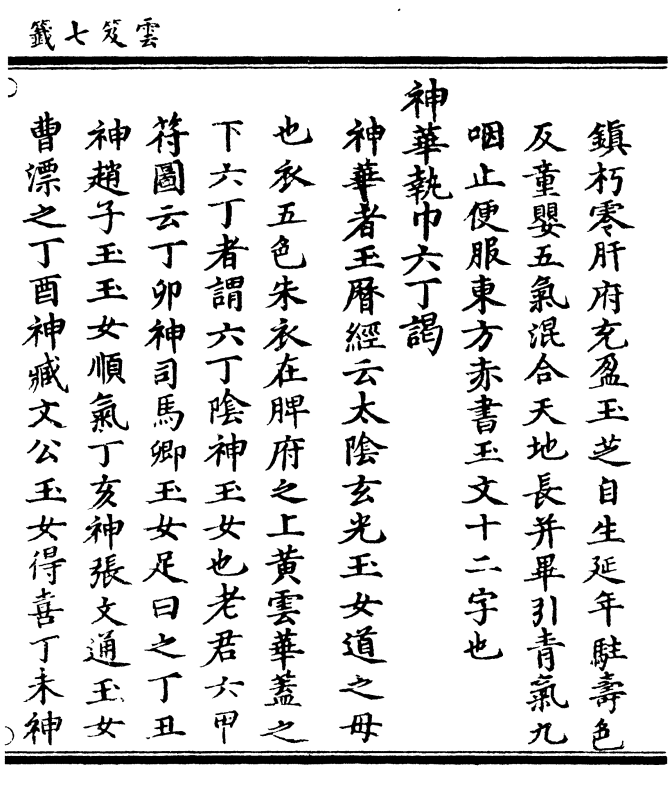 雲笈七籤
鎮朽零肝府充盈玉芝自生延年駐壽色
反童嬰五氣混合天地長并畢引青氣九
咽止便服東方赤書玉文十二字也
神華執巾六丁謁
神華者玉曆經云太陰玄光玉女道之母
也衣五色朱衣在脾府之上黃雲華蓋之
下六丁者謂六丁陰神玉女也老君六甲
符圖云丁卯神司馬卿玉女足曰之丁丑
神趙子玉玉女順氣丁亥神張文通玉女
曹漂之丁酉神臧文公玉女得喜丁未神